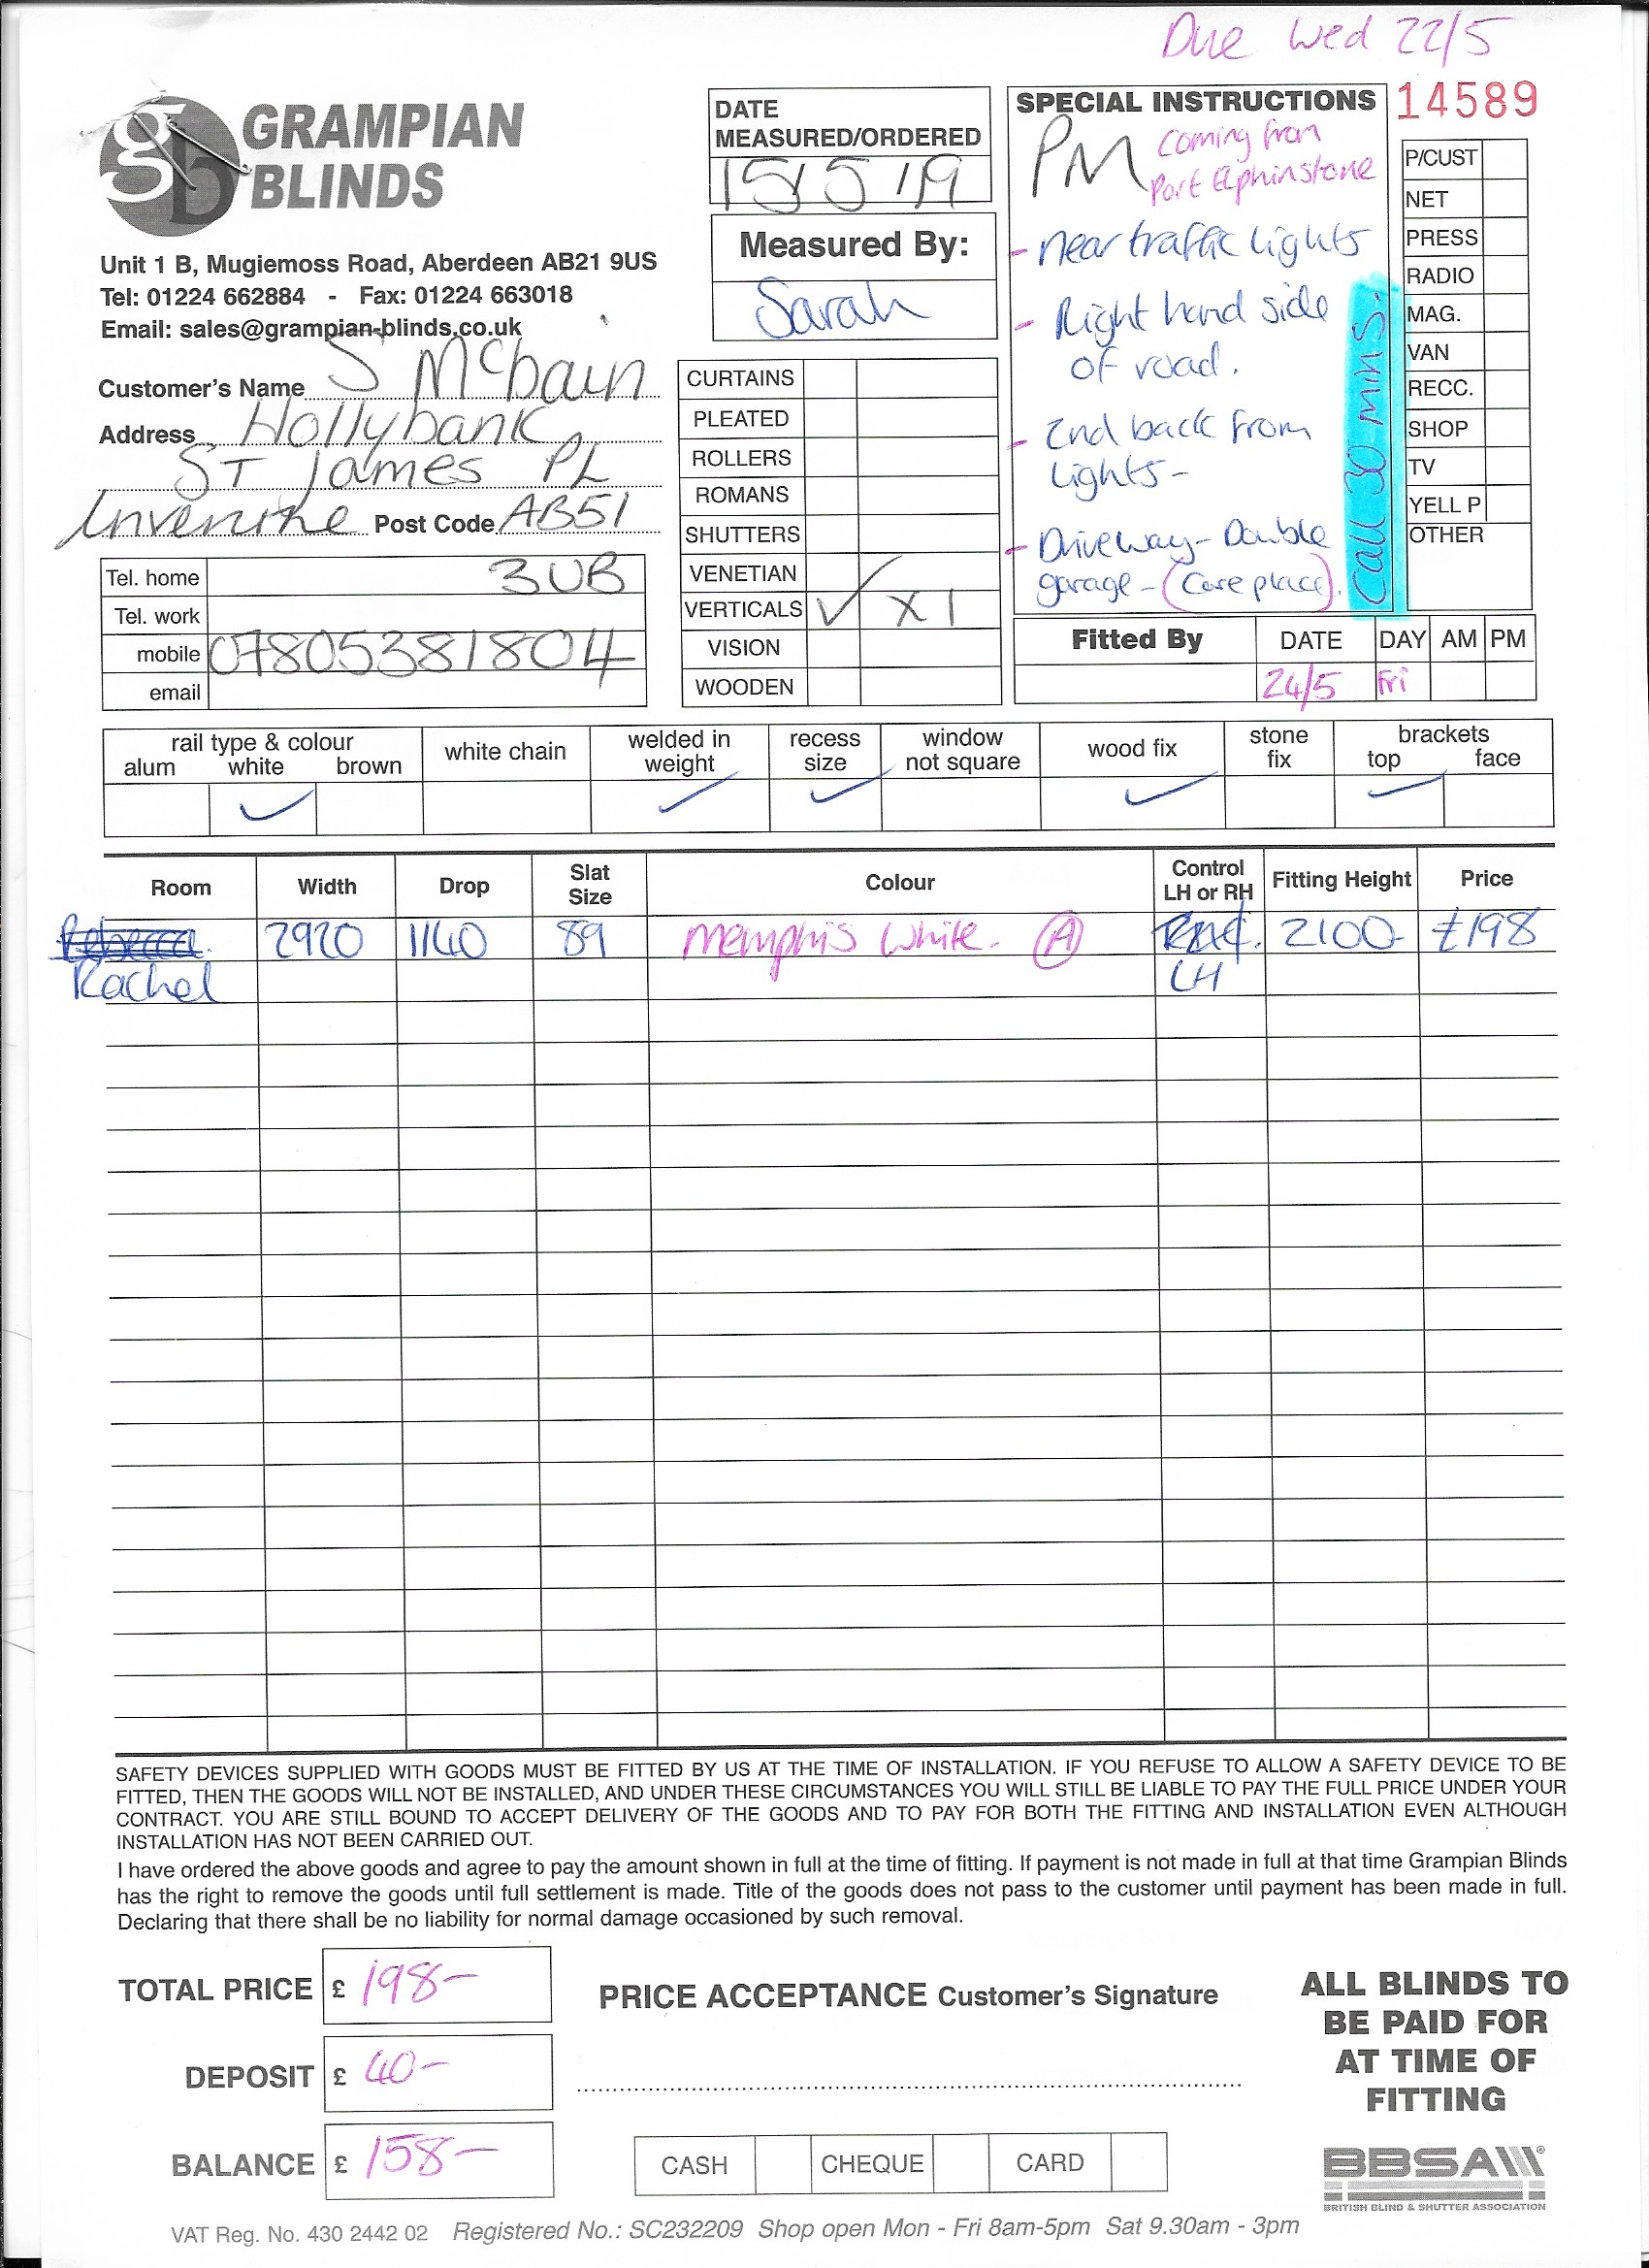 Due Wed 22/5
14589
GRAMPIAN
BLINDS
Unit 1 B, Mugiemoss Road, Aberdeen AB21 9US
Tel: 01224 662884 - Fax: 01224 663018
Email: sales@grampian-blinds.co.uk
Customer's Name S McBain
Address Hollybank
ST James PL
Inverurie Post Code AB51
Tel. home 3UB
Tel. work
mobile 07805381804
email
DATE
MEASURED/ORDERED
15/5/19
Measured By:
Sarah
CURTAINS
PLEATED
ROLLERS
ROMANS
SHUTTERS
VENETIAN
VERTICALS ✓ X 1
VISION
WOODEN
SPECIAL INSTRUCTIONS
PM coming from
Port Elphinstone
- near traffic lights
- Right hand side
of road.
- 2nd back from
lights-
- Driveway - Double
garage - (Care place).
Call 30 mins.
P/CUST
NET
PRESS
RADIO
MAG.
VAN
RECC.
SHOP
TV
YELL P
OTHER
Fitted By DATE DAY AM PM
24/5 Fri
rail type & colour
alum white brown
white chain
welded in
weight
recess
size
window
not square
wood fix
stone
fix
brackets
top face
✓ ✓ ✓ ✓ ✓
Room Width Drop Slat
Size Colour Control
LH or RH Fitting Height Price
Rebecca 2920 1140 89 Memphis White. (A) 2100- £198
Rachel LH
SAFETY DEVICES SUPPLIED WITH GOODS MUST BE FITTED BY US AT THE TIME OF INSTALLATION. IF YOU REFUSE TO ALLOW A SAFETY DEVICE TO BE
FITTED, THEN THE GOODS WILL NOT BE INSTALLED, AND UNDER THESE CIRCUMSTANCES YOU WILL STILL BE LIABLE TO PAY THE FULL PRICE UNDER YOUR
CONTRACT. YOU ARE STILL BOUND TO ACCEPT DELIVERY OF THE GOODS AND TO PAY FOR BOTH THE FITTING AND INSTALLATION EVEN ALTHOUGH
INSTALLATION HAS NOT BEEN CARRIED OUT.
I have ordered the above goods and agree to pay the amount shown in full at the time of fitting. If payment is not made in full at that time Grampian Blinds
has the right to remove the goods until full settlement is made. Title of the goods does not pass to the customer until payment has been made in full.
Declaring that there shall be no liability for normal damage occasioned by such removal.
TOTAL PRICE £ 198-
DEPOSIT £ 40-
BALANCE £ 158-
PRICE ACCEPTANCE Customer's Signature
CASH CHEQUE CARD
ALL BLINDS TO
BE PAID FOR
AT TIME OF
FITTING
BBSA
BRITISH BLIND & SHUTTER ASSOCIATION
VAT Reg. No. 430 2442 02 Registered No.: SC232209 Shop open Mon - Fri 8am-5pm Sat 9.30am - 3pm